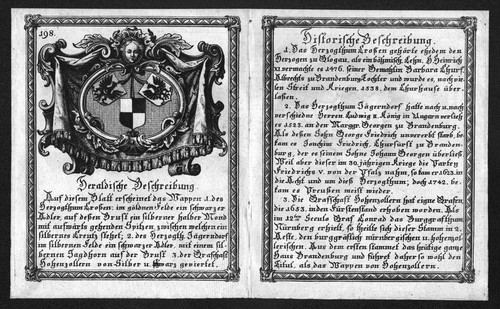 198.
Heraldische Beschreibung
Auf diesem Blatt erscheinet das Wappen 1. des
Herzogthum Croßen: im güldnen Felde ein schwarzer
Adler, auf deßen Brust ein silberner halber Mond
mit aufwärts gehenden Spitzen, zwischen welchen ein
silbernes Creutz stehet; 2. des Herzogth. Jägerndorf
im silbernen Felde ein schwarzer Adler, mit einem sil-
bernen Jagdhorn auf der Brust 3. der Grafschaft
Hohenzollern von Silber u. schwarz geviertet.
Historische Beschreibung.
1. Das Herzogthum Croßen gehörte ehedem den
Herzogen zu Glogau, als ein böhmisch. Lehn. H. Heinrich
XI. vermachte es 1476. seiner Gemahlin Barbara Churf.
Albrechts zu Brandenburg Tochter und wurde es, nach vie-
len Streit und Kriegen, 1538. dem Churhause über-
laßen.
2. Das Herzogthum Jägerndorf hatte nach u. nach
verschiedne Herren. Ludwig II. König in Ungarn verlieh
es 1523. an den Marggr. Georgen zu Brandenburg.
Als deßen Sohn George Friedrich unvererbt starb, be-
kam es Joachim Friedrich, Churfürst zu Branden-
burg, der es seinem Sohne Johann Georgen überließ
Weil aber dieser im 30. jährigen Kriege die Parthy
Friedrichs V. von der Pfalz nahm, so kam er 1623. in
die Acht und um dies Herzogthum; doch 1742. be-
kam es Preußen meist wieder.
3. Die Grafschaft Hohenzollern hat eigne Grafen
die 1653. in den Fürstenstand erhoben worden. Als
im 12ten Seculo Graf Conrad das Burggrafthum
Nürnberg erhielt, so theilte sich dieser Stamm in 2.
Aeste, den burggräflich nürnbergischen u. hohenzol-
lerischen. Aus dem ersten stammet das heutige ganze
Haus Brandenburg und führet daher so wohl den
Titul, als das Wappen von Hohenzollern.